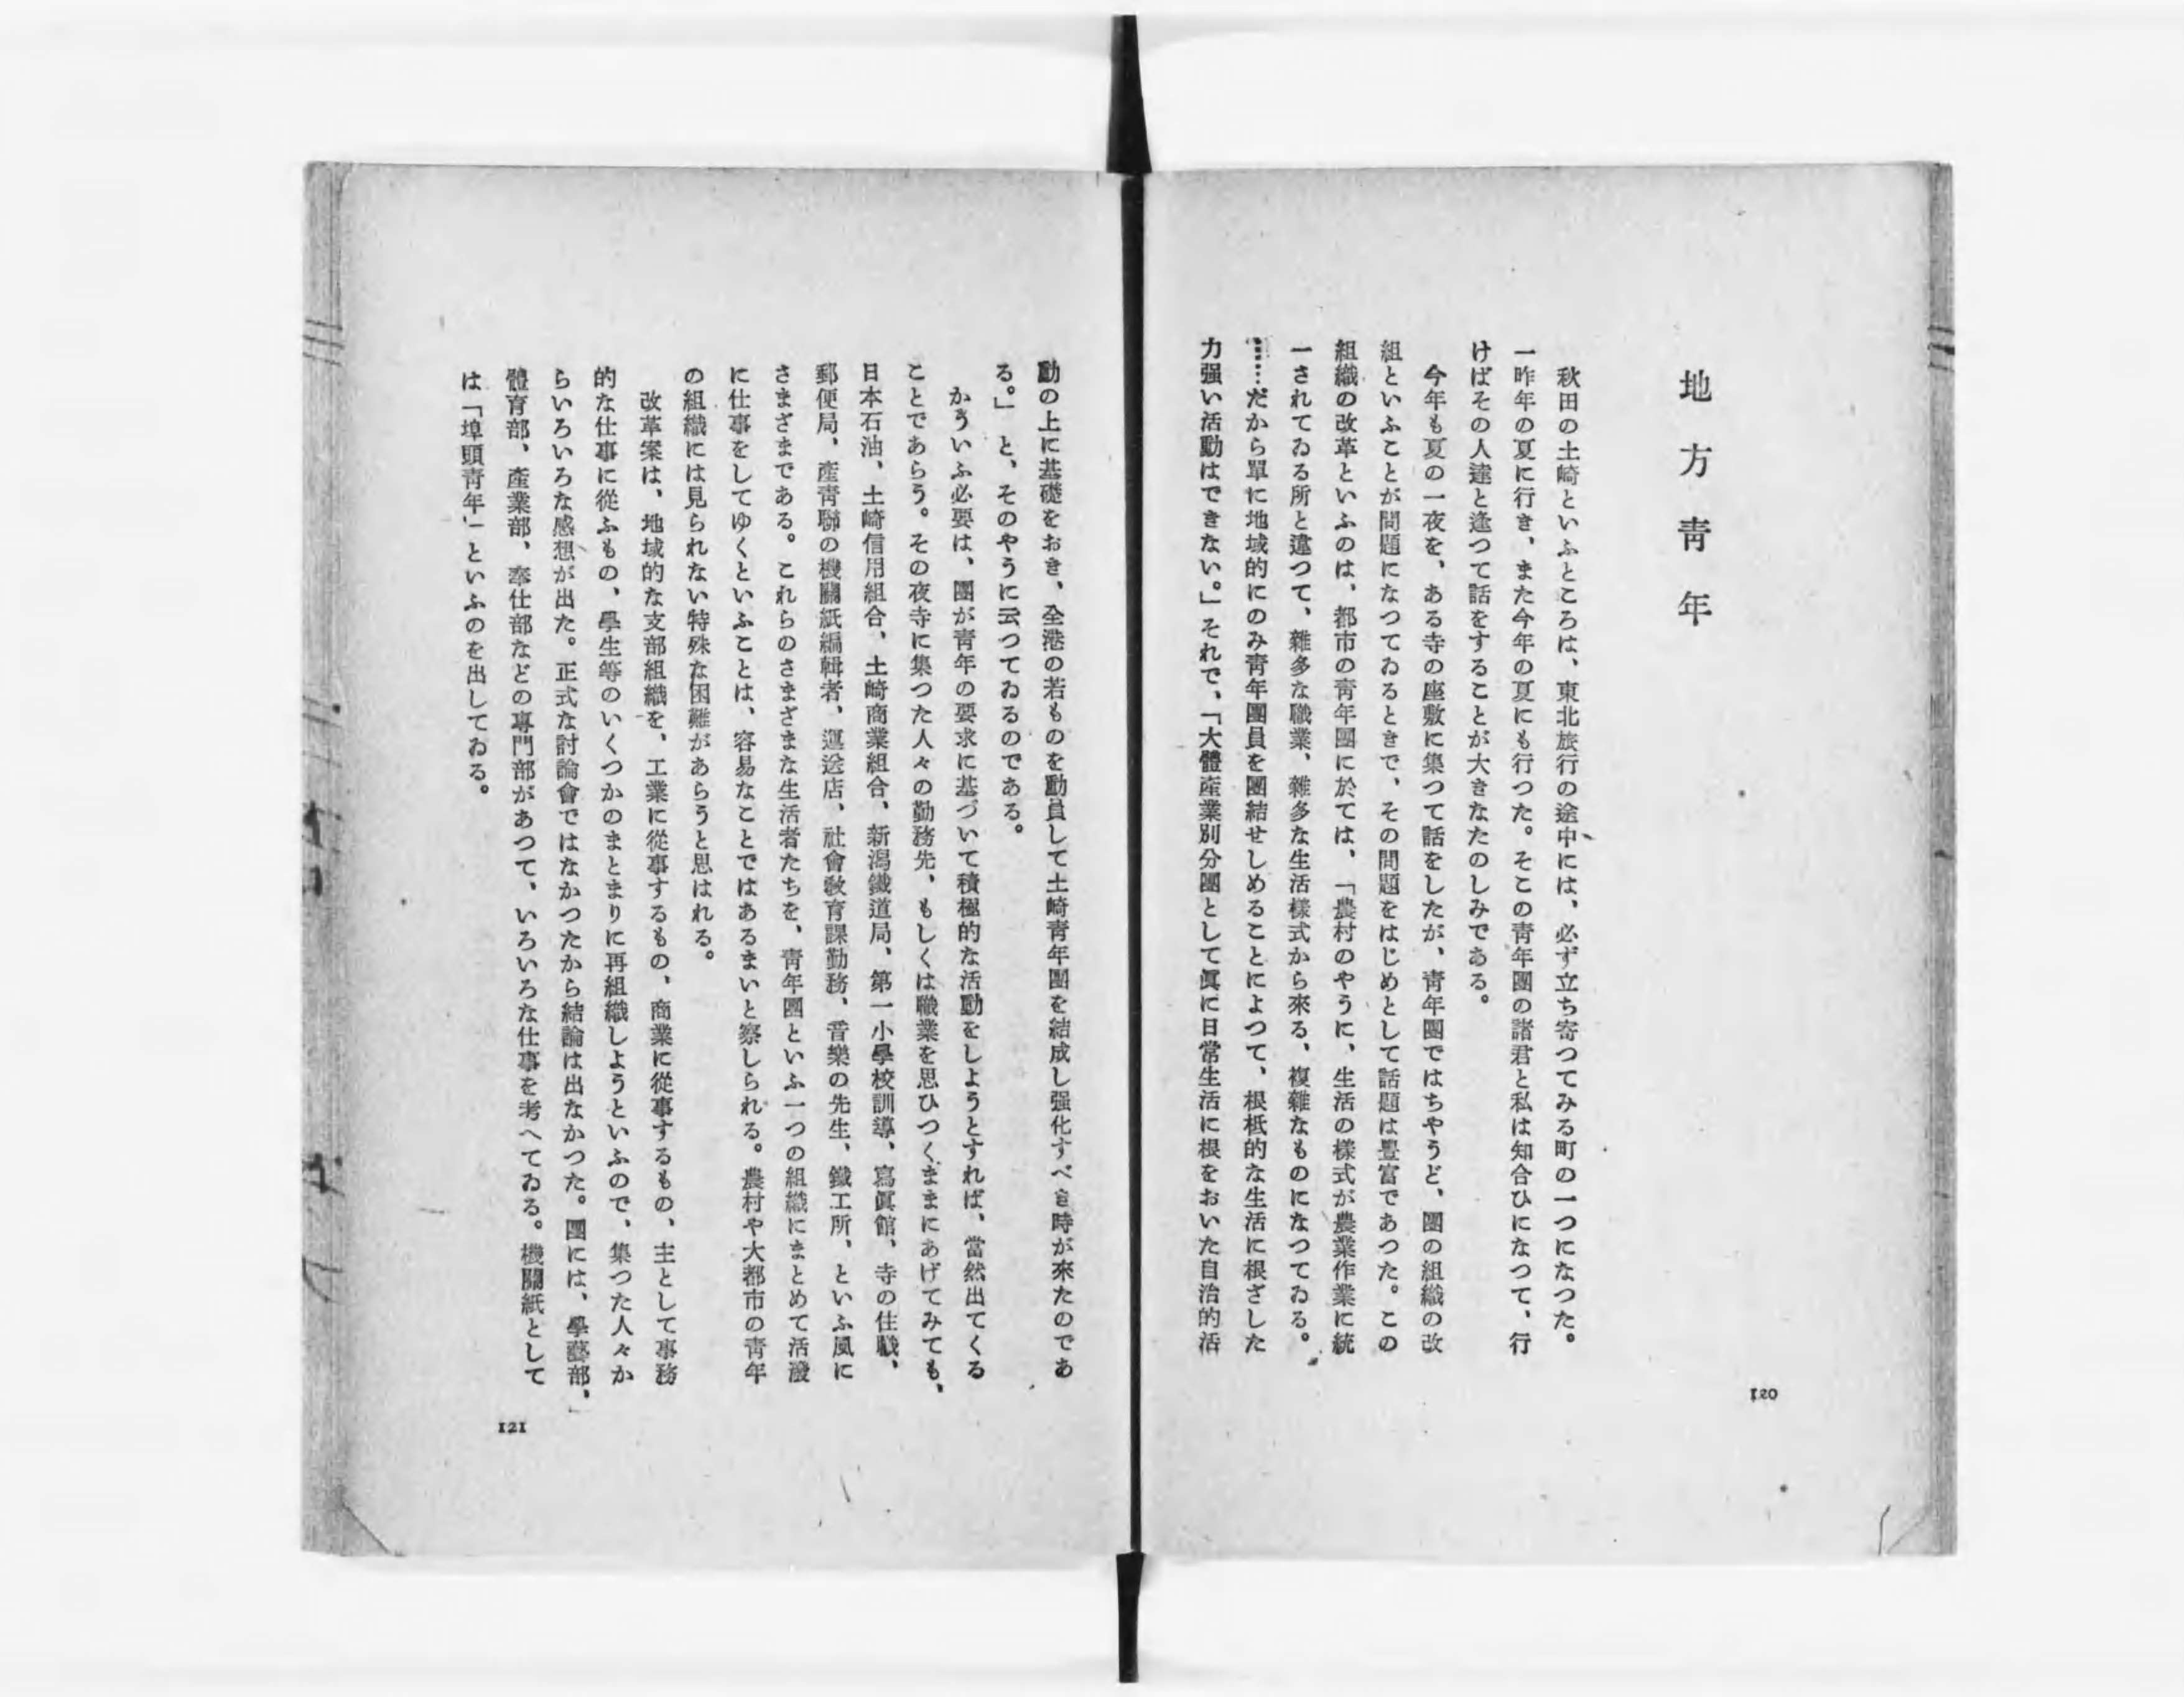 地方靑年
秋田の土崎といふところは、東北旅行の途中には、必ず立ち寄つてみる町の一つになつた。
一昨年の夏に行き、また今年の夏にも行つた。そこの靑年團の諸君と私は知合ひになつて、行
けばその人達と逢つて話をすることが大きなたのしみである。
今年も夏の一夜を、ある寺の座敷に集つて話をしたが、靑年團ではちやうど、團の組織の改
組といふことが問題になつてゐるときで、その問題をはじめとして話題は豐富であつた。この
組織の改革といふのは、都市の靑年團に於ては、「農村のやうに、生活の樣式が農業作業に統
一されてゐる所と違つて、雜多な職業、雜多な生活樣式から來る、複雜なものになつてゐる。
……だから單に地域的にのみ靑年團員を團結せしめることによつて、根柢的な生活に根ざした
力强い活動はできない。」それで、「大體產業別分團として眞に日常生活に根をおいた自治的活
120
動の上に基礎をおき、全港の若ものを動員して土崎靑年團を結成し强化すべき時が來たのであ
る。」と、そのやうに云つてゐるのである。
かういふ必要は、團が靑年の要求に基づいて積極的な活動をしようとすれば、當然出てくる
ことであらう。その夜寺に集つた人々の勤務先、もしくは職業を思ひつくままにあげてみても、
日本石油、土崎信用組合、土崎商業組合、新潟鐵道局、第一小學校訓導、寫眞館、寺の住職、
郵便局、產靑聯の機關紙編輯者、運送店、社會敎育課勤務、音樂の先生、鐵工所、といふ風に
さまざまである。これらのさまざまな生活者たちを、靑年團といふ一つの組織にまとめて活潑
に仕事をしてゆくといふことは、容易なことではあるまいと察しられる。農村や大都市の靑年
の組織には見られない特殊な困難があらうと思はれる。
改革案は、地域的な支部組織を、工業に從事するもの、商業に從事するもの、主として事務
的な仕事に從ふもの、學生等のいくつかのまとまりに再組織しようといふので、集つた人々か
らいろいろな感想が出た。正式な討論會ではなかつたから結論は出なかつた。團には、學藝部、
體育部、產業部、奉仕部などの專門部があつて、いろいろな仕事を考へてゐる。機關紙として
は「埠頭靑年」といふのを出してゐる。
121